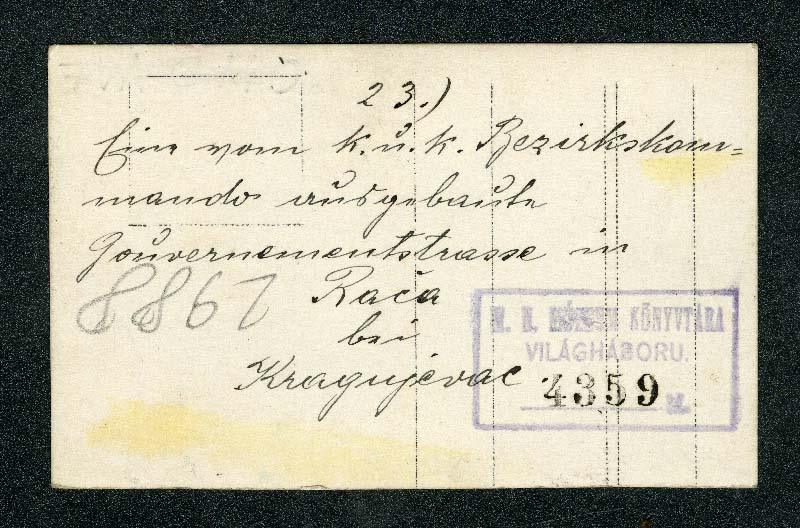 23.)
Eine vom k.u.k. Bezirkskom=
mando ausgebaute
Gouvernementstrasse in
Rača
bei
Kragujevac.
8867
KÖNYVTÁRA
VILÁGHÁBORU.
4359